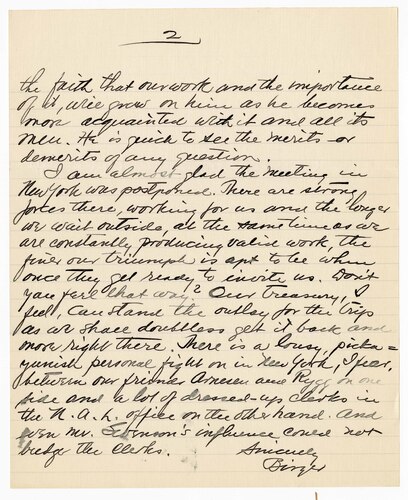 2
the faith that our work and the importance
of it, will grow on him as he becomes
more acquainted with it and all its
men. He is quick to see the merits or
demerits of any question.
I am almost glad the meeting in
New York was postponed. There are strong
forces there, working for us and the longer
we wait outside, at the same time as we
are constantly producing valid work, the
finer our triumph is apt to be when
once they get ready to invite us. Don't
you feel that way? Our treasury, I
feel, can stand the outlay for the trips
as we shall doubtless get it back and
more right there. There is a lousy, picka=
yunish personal fight on in New York, I fear,
between our friends Arnesen and Rygg on one
side and a lot of dressed-up clerks in
the N. A. L. office on the other hand. And
even Mr. Swenson's influence could not
the clerks. Sincerely
Birger